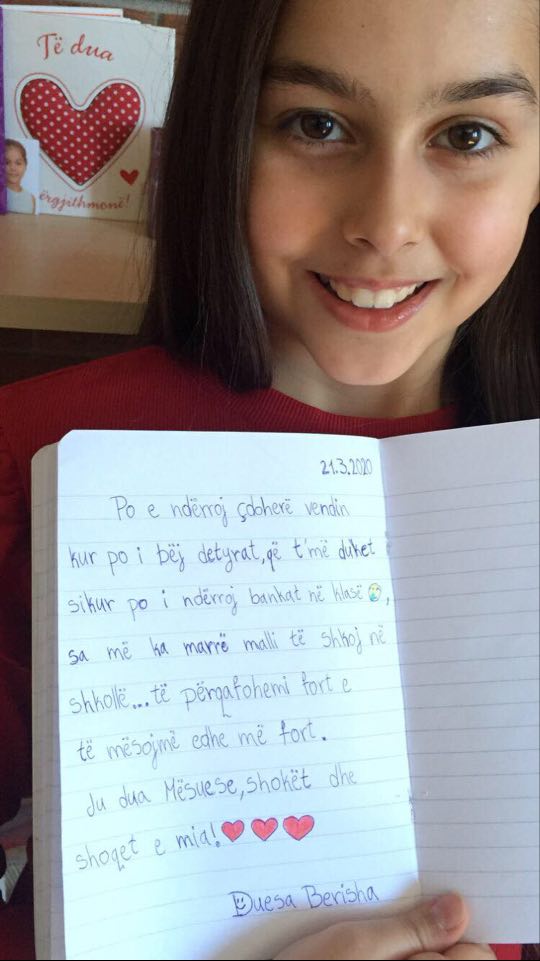 Të dua
ërgjithmonë!
21.3.2020
Po e ndërroj çdoherë vendin
kur po i bëj detyrat, që t'më duket
sikur po i ndërroj bankat në klasë 😢,
sa më ka marrë malli të shkoj në
shkollë...të përqafohemi fort e
të mësojmë edhe më fort.
Ju dua Mësuese, shokët dhe
shoqet e mia! ❤❤❤
Duesa Berisha